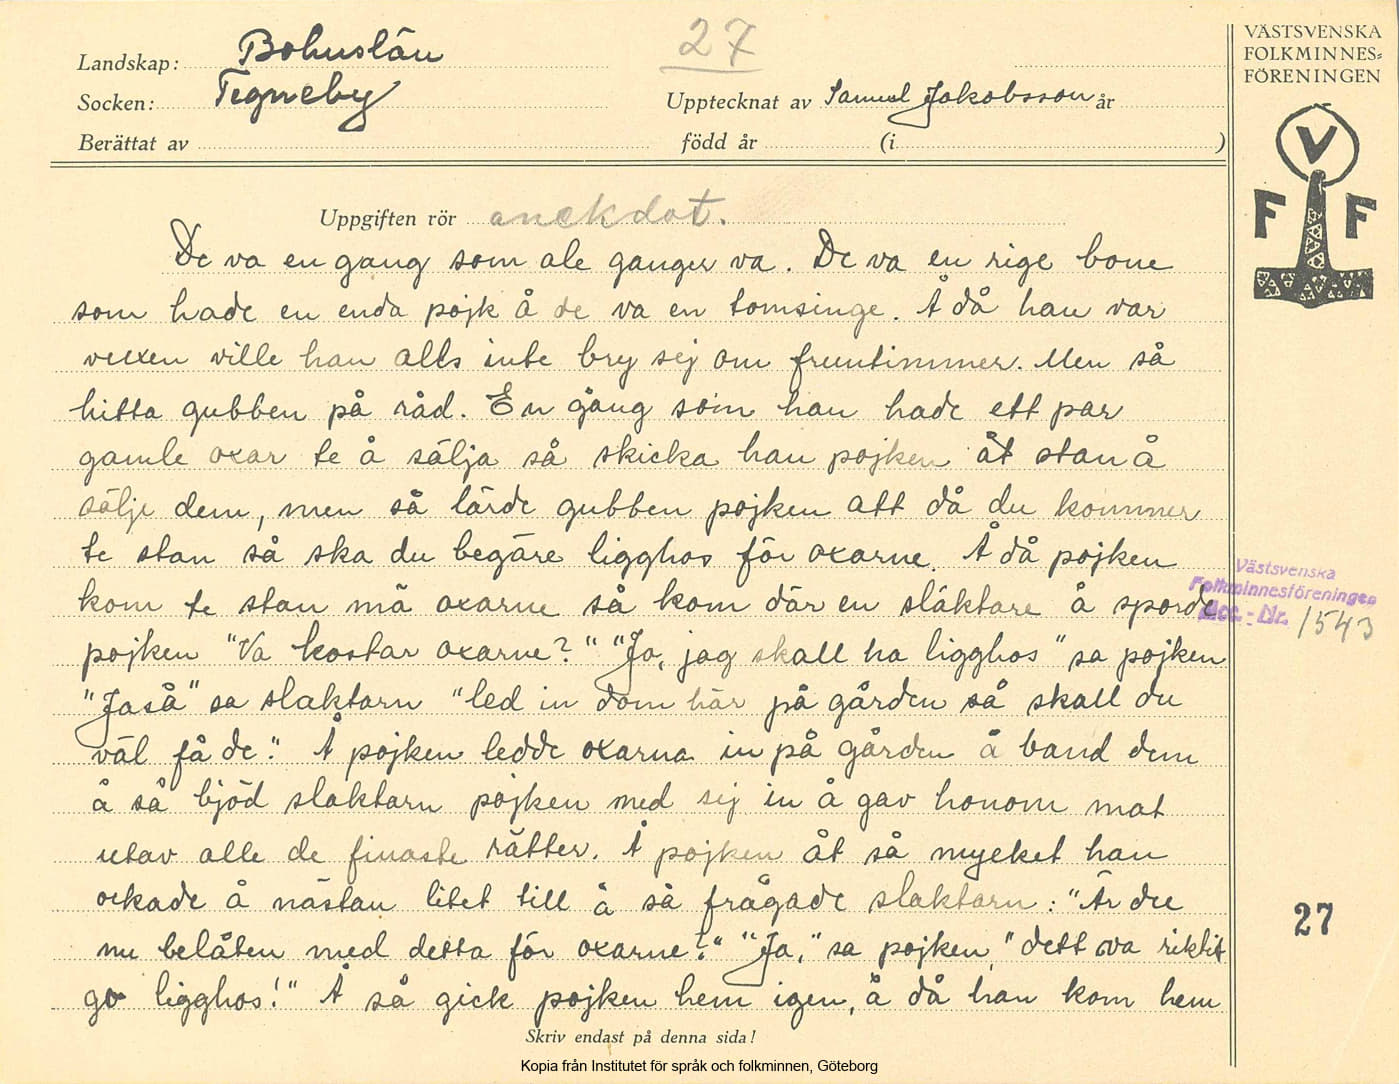 Landskap: Bohuslän
27
Socken: Tegneby
Upptecknat av Samuel Jakobsson år
Berättat av
född år (i )
VÄSTSVENSKA
FOLKMINNES=
FÖRENINGEN
V
F F
Uppgiften rör anekdot.
De va en gang som ale ganger va. De va en rige bone
som hade en enda pojk å de va en tomsinge. Å då han var
vuxen ville han alls inte bry sej om fruntimmer. Men så
hitta gubben på råd. En gång som han hade ett par
gamle oxar te å sälja så skicka han pojken åt stan å
sälje dem, men så lärde gubben pojken att då du kommer
te stan så ska du begäre ligghos för oxarne. Å då pojken
kom te stan mä oxarne så kom där en släktare å sporde
pojken "Va kostar oxarne?" "Jo, jag skall ha ligghos" sa pojken
"Jaså" sa slaktarn "led in dom här på gården så skall du
väl få de." Å pojken ledde oxarna in på gården å band dem
å så bjöd slaktarn pojken med sej in å gav honom mat
utav alle de finaste rätter. Å pojken åt så mycket han
orkade å nästan litet till å så frågade slaktarn: "Är du
nu belåten med detta för oxarne?" "Ja," sa pojken "dett va riktit
go ligghos!" Å så gick pojken hem igen, å då han kom hem
Västsvenska
Folkminnesföreningen
Acc.-Nr. 1543
27
Skriv endast på denna sida!
Kopia från Institutet för språk och folkminnen, Göteborg